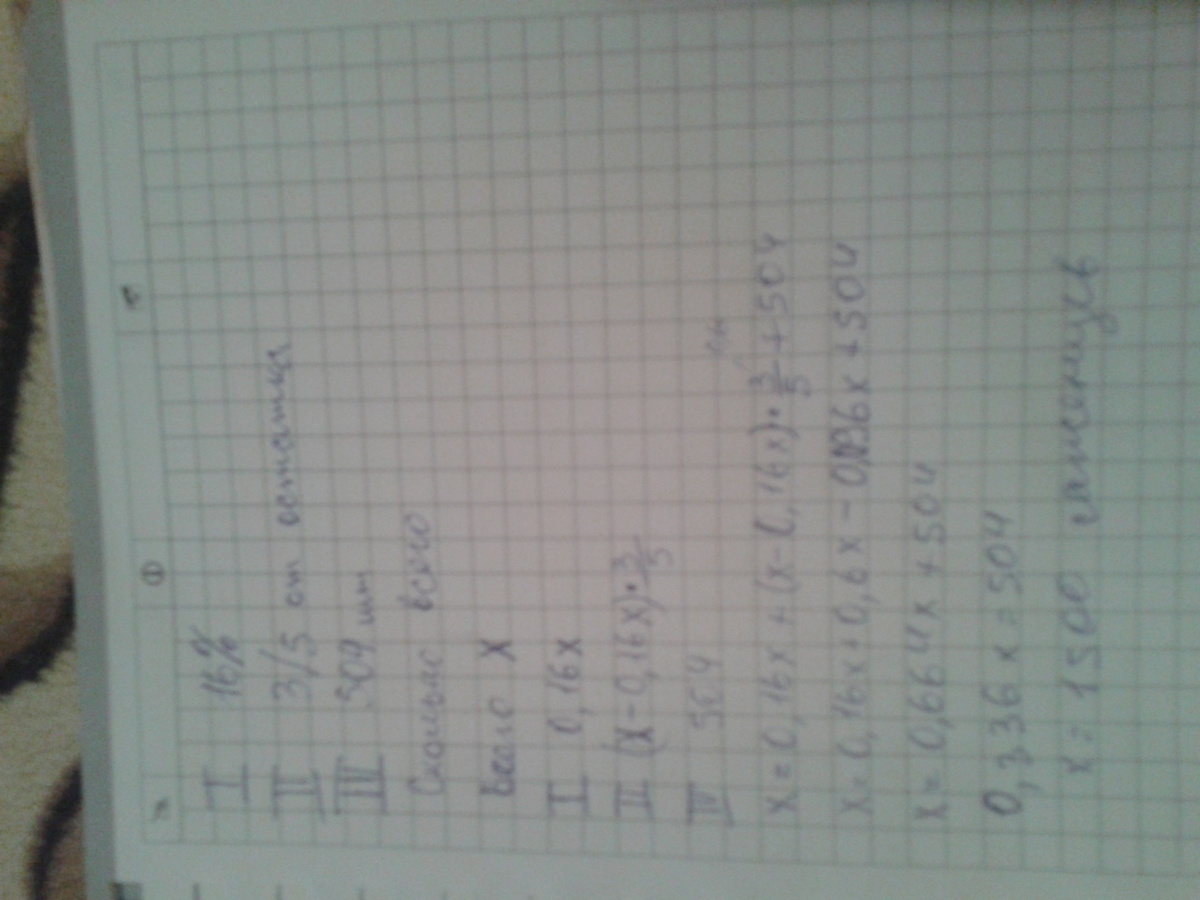 ①
I 16%
II 3/5 от остатка
III 504 шт
Сколько всего
Всего X
I 0,16x
II (x-0,16x)·3/5
III 504
x=0,16x+(x-0,16x)·3/5+504
x=0,16x+0,6x-0,096x+504
x=0,664x+504
0,336x=504
x=1500 саженцев